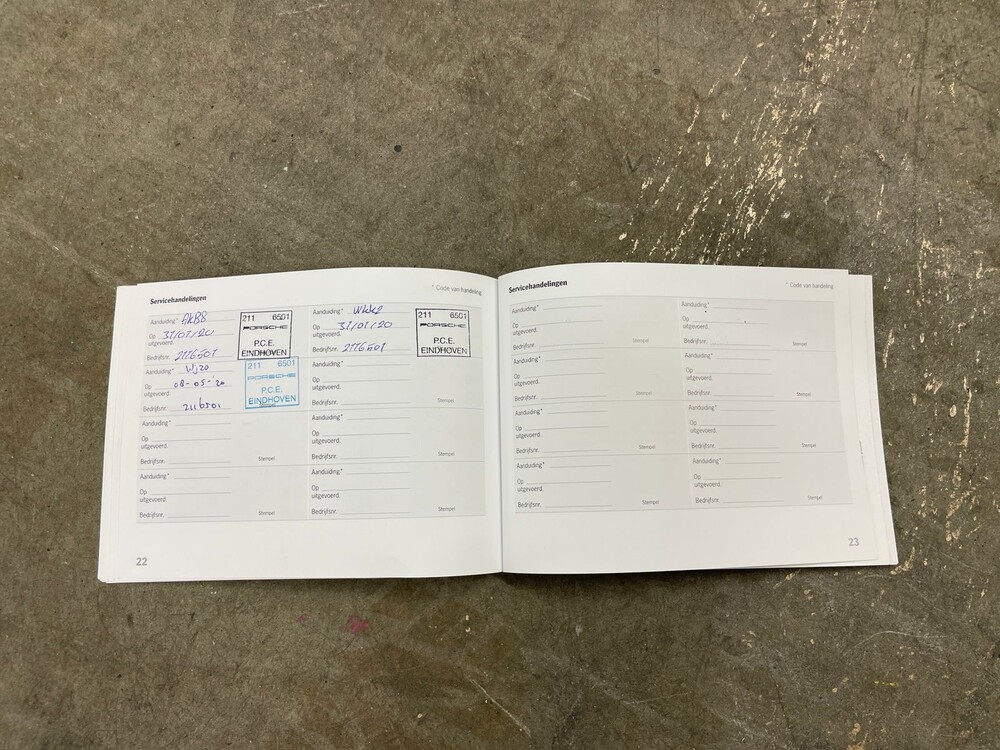 Servicehandelingen
* Code van handeling
Aanduiding* AKB8
Op 31/01/20
uitgevoerd.
Bedrijfsnr. 2116501
211 6501
PORSCHE
P.C.E.
EINDHOVEN
Aanduiding*
Op 31/01/20
uitgevoerd.
Bedrijfsnr. 2116501
211 6501
PORSCHE
P.C.E.
EINDHOVEN
Aanduiding* WJ20
Op 08-05-'20
uitgevoerd.
Bedrijfsnr. 2116501
211 6501
PORSCHE
P.C.E.
EINDHOVEN
Aanduiding*
Op
uitgevoerd.
Bedrijfsnr.
Stempel
Aanduiding*
Op
uitgevoerd.
Bedrijfsnr.
Stempel
Aanduiding*
Op
uitgevoerd.
Bedrijfsnr.
Stempel
Aanduiding*
Op
uitgevoerd.
Bedrijfsnr.
Stempel
Aanduiding*
Op
uitgevoerd.
Bedrijfsnr.
Stempel
22
Servicehandelingen
* Code van handeling
Aanduiding*
Op
uitgevoerd.
Bedrijfsnr.
Stempel
Aanduiding*
Op
uitgevoerd.
Bedrijfsnr.
Stempel
Aanduiding*
Op
uitgevoerd.
Bedrijfsnr.
Stempel
Aanduiding*
Op
uitgevoerd.
Bedrijfsnr.
Stempel
Aanduiding*
Op
uitgevoerd.
Bedrijfsnr.
Stempel
Aanduiding*
Op
uitgevoerd.
Bedrijfsnr.
Stempel
Aanduiding*
Op
uitgevoerd.
Bedrijfsnr.
Stempel
Aanduiding*
Op
uitgevoerd.
Bedrijfsnr.
Stempel
23